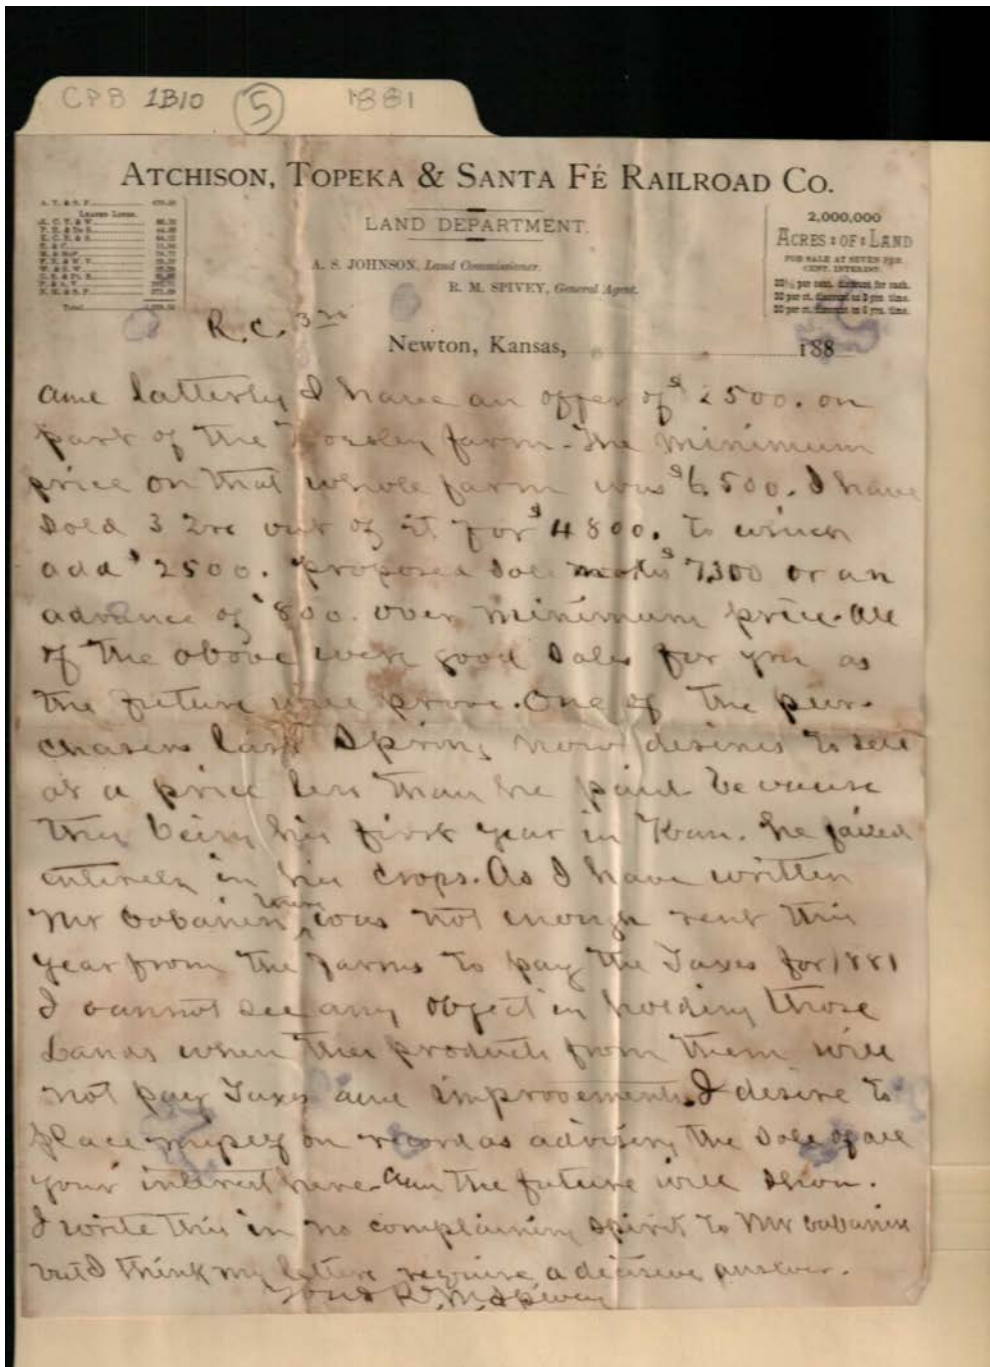 CPB 1B10 5 1881
ATCHISON, TOPEKA & SANTA FÉ RAILROAD CO.
LAND DEPARTMENT.
A. S. JOHNSON, Land Commissioner.
R. M. SPIVEY, General Agent.
2,000,000
ACRES : OF : LAND
FOR SALE AT SEVEN PER
CENT. INTEREST.
per cent. discount for cash.
20 per ct. discount on 6 yrs. time.
R.C. 3
Newton, Kansas, 188
and latterly I have an offer of $2500. on
part of the farm - The minimum
price on that whole farm was $6500. I have
sold 3 out of it for $4800. to which
add $2500. proposed sale makes $7300 or an
advance of $800. over minimum price. All
of the above were good sales for you as
the future will prove. One of the pur-
chasers last Spring now desires to sell
at a price less than he paid because
this being his first year in Kan. he failed
entirely in his crops. As I have written
Mr Cabanin there was not enough rent this
year from the farms to pay the Taxes for 1881
I cannot see any object in holding those
Lands when the products from them will
not pay Taxes and improvements. I desire to
place myself on record as advising the sale of all
your interest here - and the future will show.
I write this in no complaining spirit to Mr Cabanin
but I think my letters require a decisive answer.
Yours R. M. Spivey